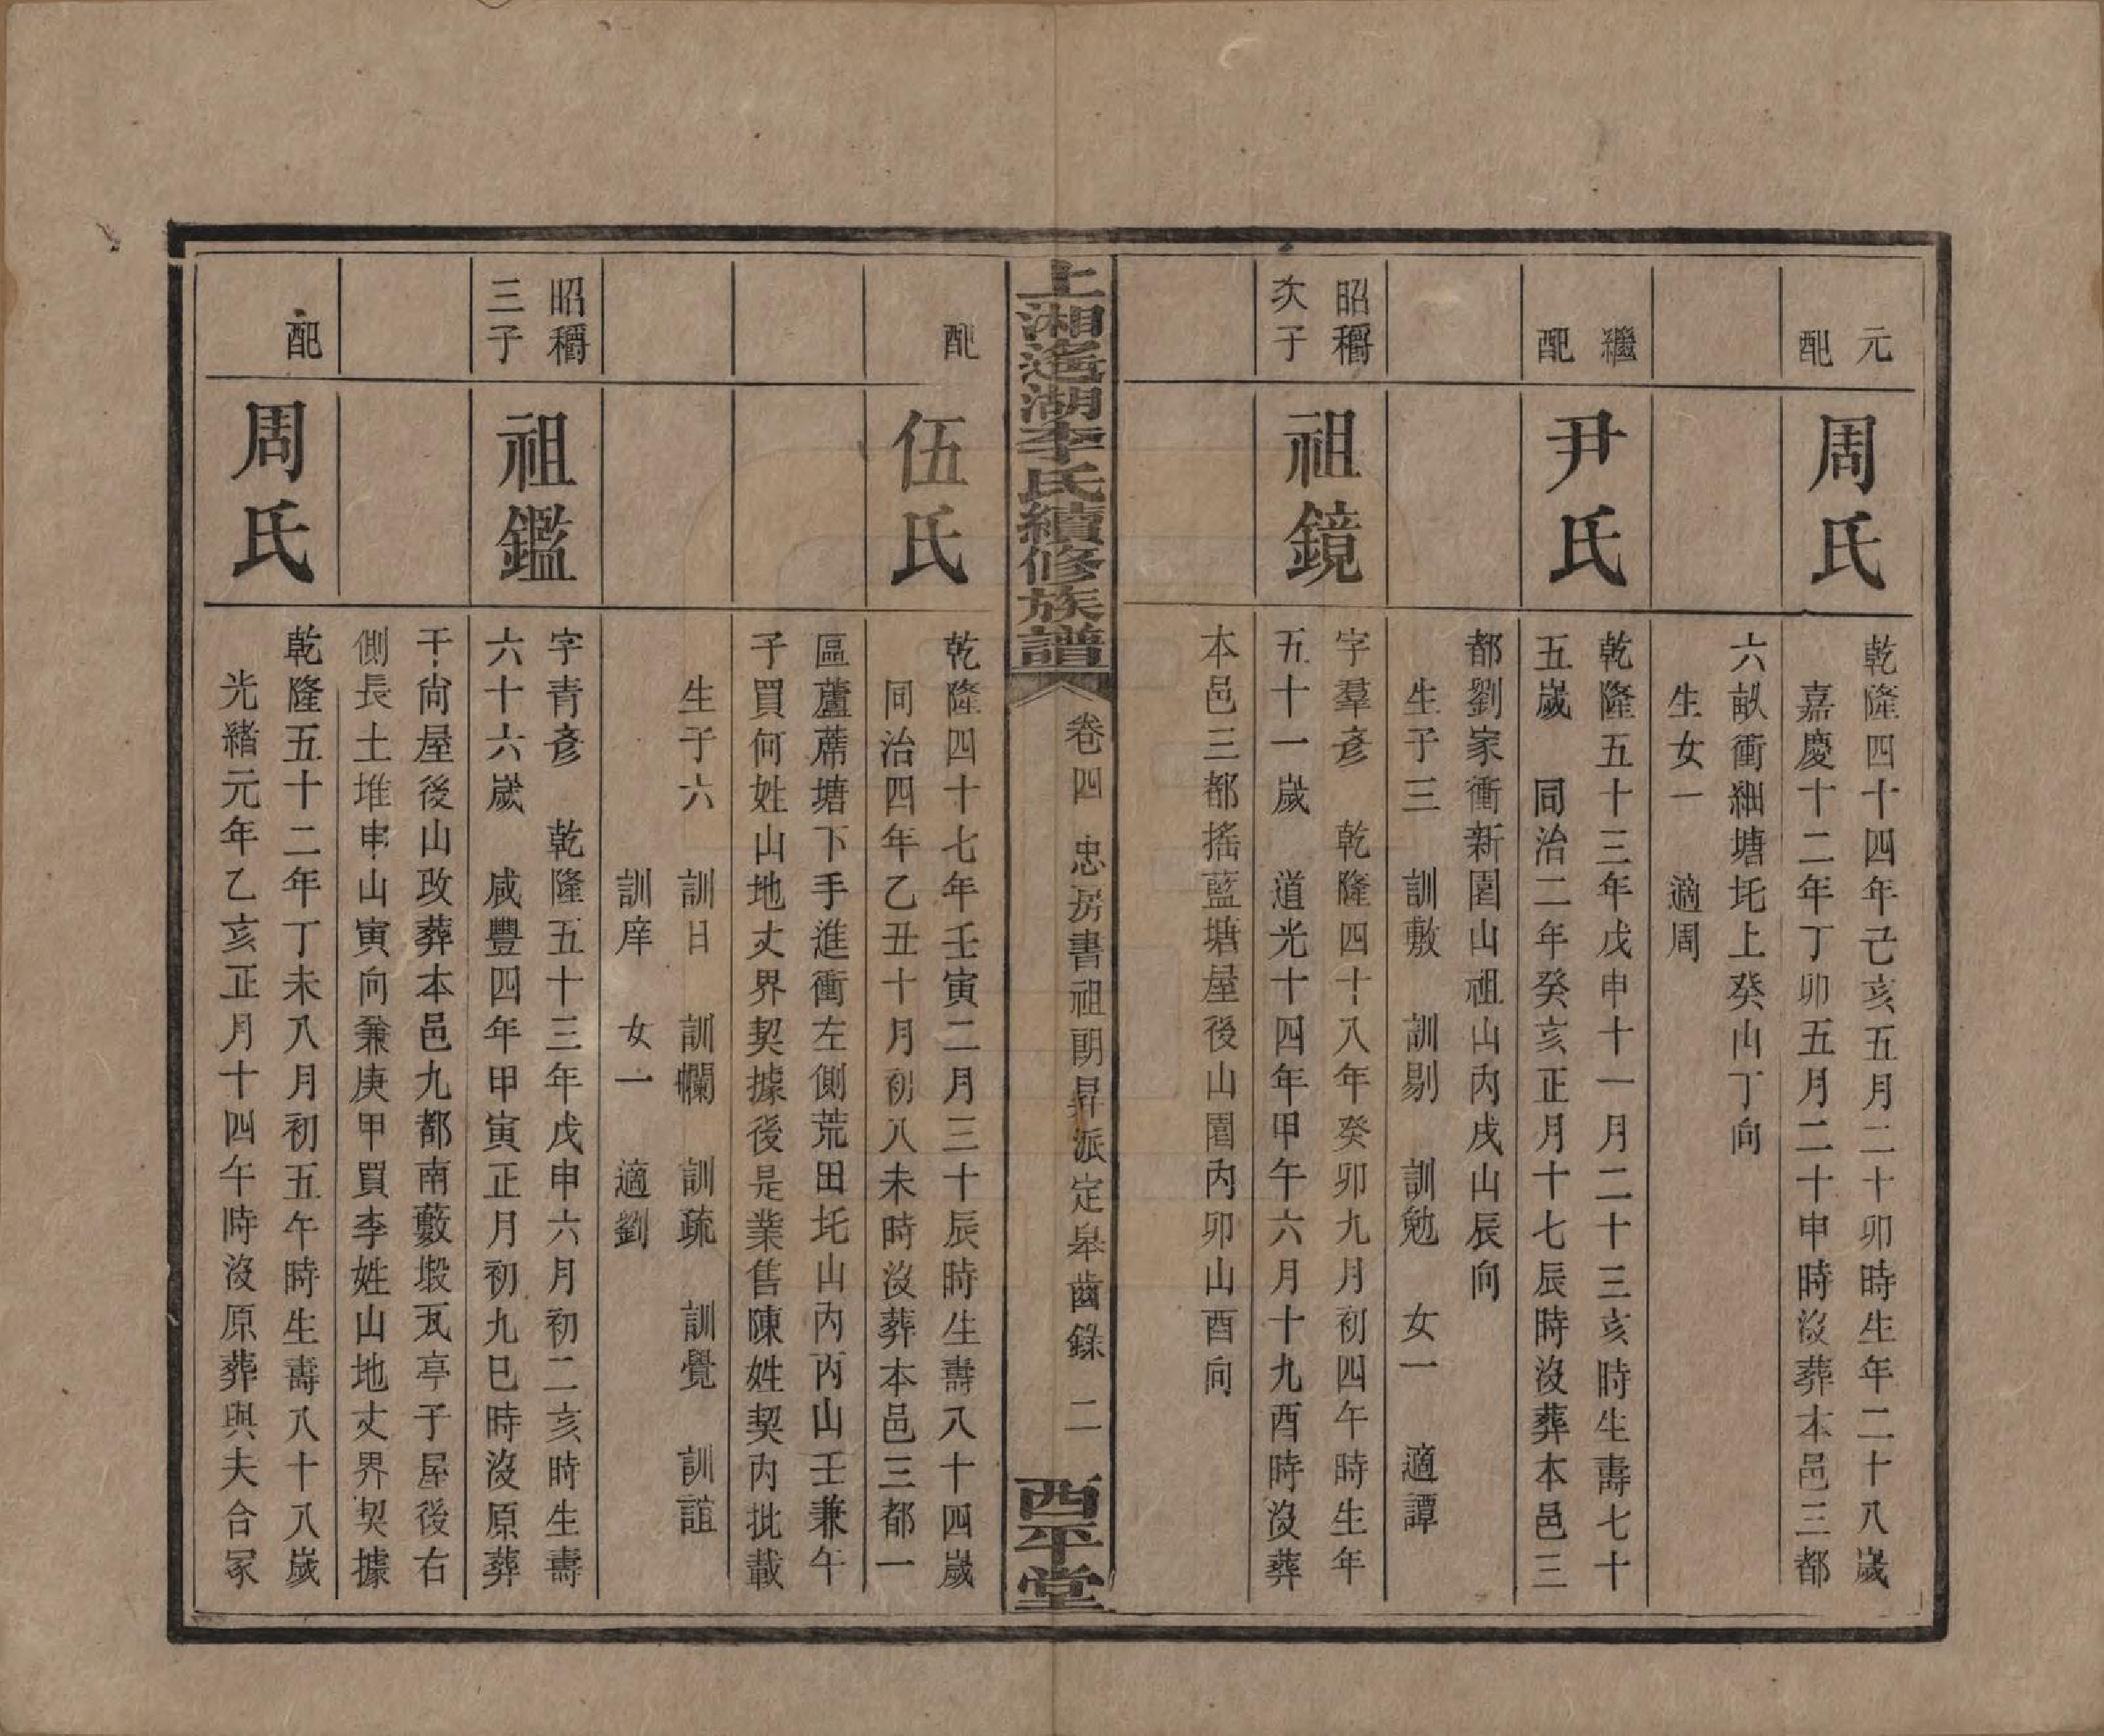 元
配
周氏
乾隆四十四年己亥五月二十卯時生年二十八歲
嘉慶十二年丁卯五月二十申時沒葬本邑三都
六畝衝細塘坨上癸山丁向
生女一　適周
繼
配
尹氏
乾隆五十三年戊申十一月二十三亥時生壽七十
五歲　同治二年癸亥正月十七辰時沒葬本邑三
都劉家衝新園山祖山內戌山辰向
生子三　訓敷　訓剔　訓勉　女一　適譚
昭穪
次子
祖鏡
字羣彥　乾隆四十八年癸卯九月初四午時生年
五十一歲　道光十四年甲午六月十九酉時沒葬
本邑三都搖藍塘屋後山園內卯山酉向
上湘遙湖李氏續修族譜
卷四　忠房書祖朙昇派定皋齒錄　二
西平堂
配
伍氏
乾隆四十七年壬寅二月三十辰時生壽八十四歲
同治四年乙丑十月初八未時沒葬本邑三都一
區蘆蓆塘下手進衝左側荒田坨山內丙山壬兼午
子買何姓山地丈界契據後是業售陳姓契內批載
生子六　訓日　訓欄　訓疏　訓覺　訓誼
訓庠　女一　適劉
昭穪
三子
祖鑑
字青彥　乾隆五十三年戊申六月初二亥時生壽
六十六歲　咸豐四年甲寅正月初九巳時沒原葬
干尙屋後山改葬本邑九都南藪塅瓦亭子屋後右
側長土堆申山寅向兼庚甲買李姓山地丈界契據
配
周氏
乾隆五十二年丁未八月初五午時生壽八十八歲
光緒元年乙亥正月十四午時沒原葬與夫合冢